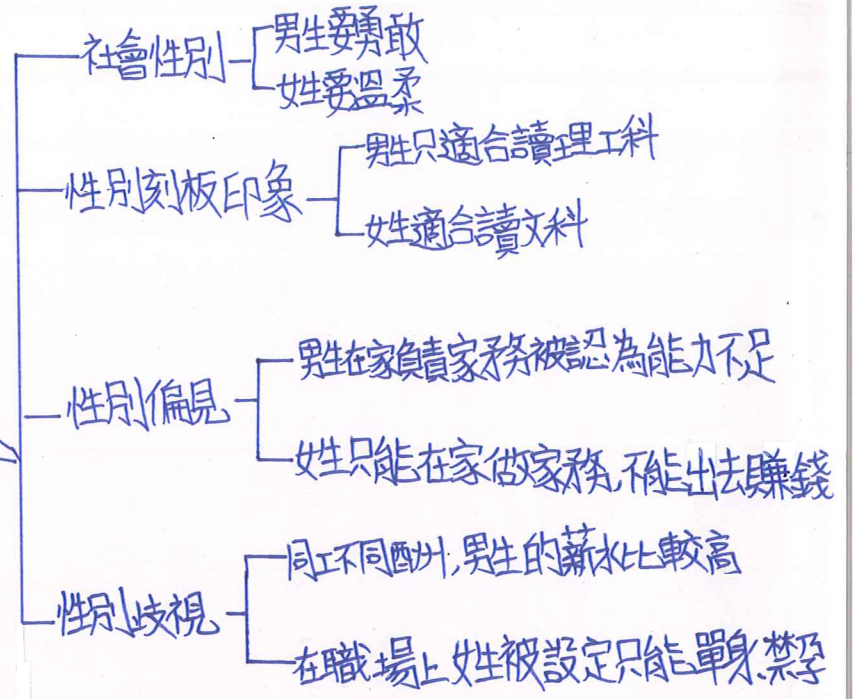 社會性別
男生要勇敢
女生要溫柔
性別刻板印象
男生只適合讀理工科
女生適合讀文科
性別偏見
男生在家負責家務被認為能力不足
女生只能在家做家務,不能出去賺錢
性別歧視
同工不同酬,男生的薪水比較高
在職場上女生被設定只能單身、禁孕